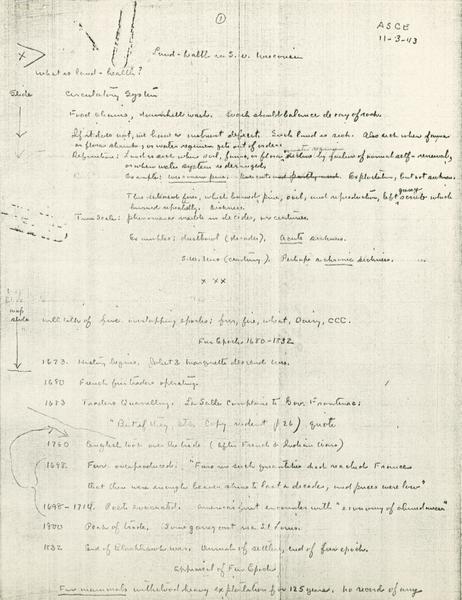 1
ASCE
11-3-43
Land-health in S.W. Wisconsin
What is land-health?
Slide Circulatory System
Food chains, downhill wash. Each should balance decay of rock.
If it does not, we have a nutrient deficit. Such land is sick. Also sick when fauna
or flora shrinks, or water regimen gets out of order.
Definition: Land is sick when soil, fauna, or flora by failure of normal self-renewal,
or when water system is deranged.
Example: Exploitation, but not sickness.
fire, which burned pine, soil, and reproduction, left scrub which
burned repeatedly. Sickness.
Time Scale: phenomena visible in decades, or centuries.
Examples: dustbowl (decades). Acute sickness.
S.W. Wis (century). Perhaps a chronic sickness.
x xx
map
slide
Will talk of five overlapping epochs: fur, fire, wheat, Dairy, CCC.
Fur Epoch 1680-1832
1673. History begins. Joliet & Marquette descend Wis.
1680 French fur traders operating.
1683 Traders Quarrelling. La Salle complains to Gov. Frontenac:
"But if they, etc. Copy p 26) quote
1760 English took over the trade (after French & Indian wars)
1698. Furs overproduced: "Furs in such quantities had reached France
that there were enough beaver skins to last a decade, and prices were low"
1698-1714. Posts evacuated. America's first encounter with "economy of abundance"
1800 Peak of trade. Swiss going out via St. Louis.
1832 End of Blackhawk war. Arrival of settlers, end of fur epoch.
Appraisal of Fur Epoch
Fur mammals withstood heavy exploitation for 125 years. No record of any